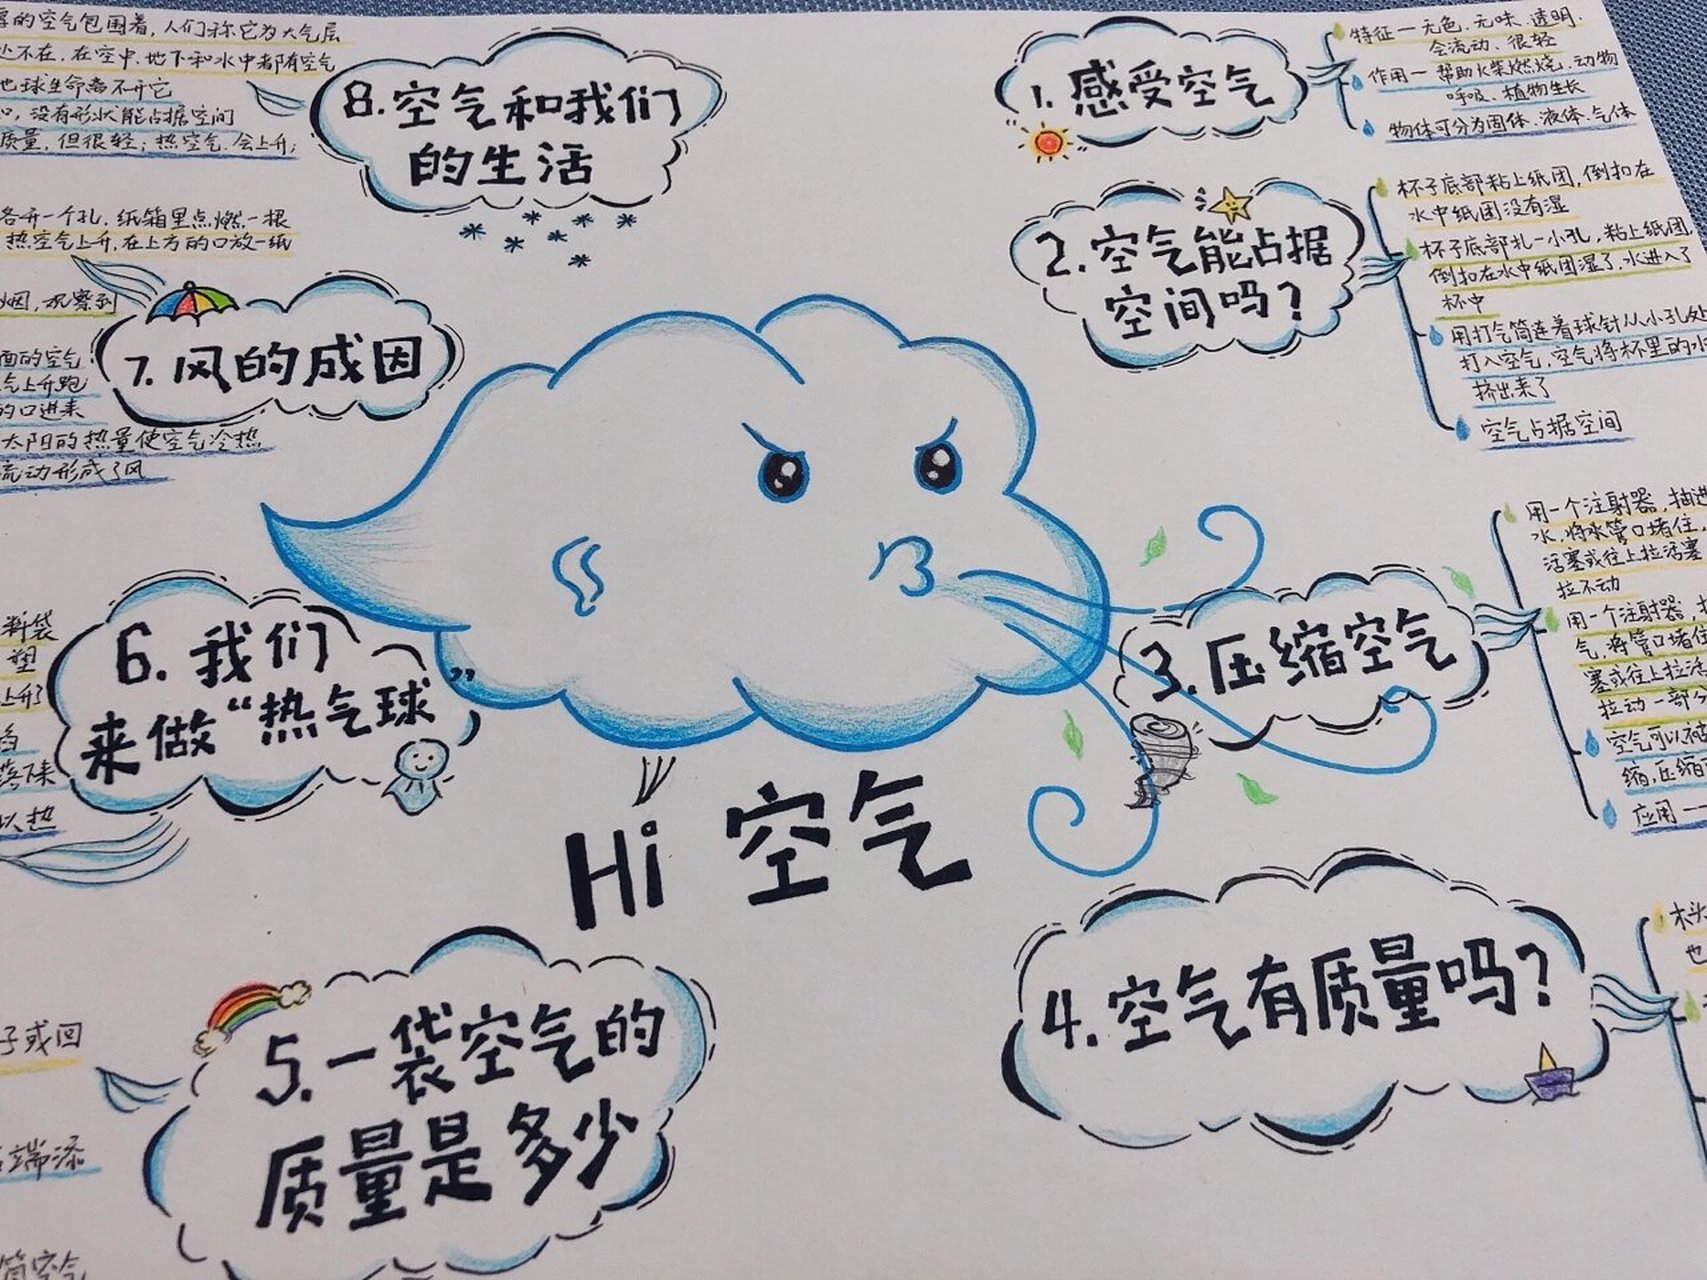 Hi 空气
1. 感受空气
特征一无色、无味、透明、
会流动、很轻
作用一 帮助火柴燃烧、动物
呼吸、植物生长
物体可分为固体、液体、气体
2. 空气能占据
空间吗?
杯子底部粘上纸团,倒扣在
水中纸团没有湿
杯子底部扎一小孔,粘上纸团,
倒扣在水中纸团湿了,水进入了
杯中
用打气筒连着球针从小孔处
打入空气,空气将杯里的水
挤出来了
空气占据空间
3. 压缩空气
用一个注射器,抽进
水,将水管口堵住,
活塞或往上拉活塞
拉不动
用一个注射器,
气,将管口堵住
塞或往上拉活
拉动一部分
空气可以被
缩,压缩
应用一
4. 空气有质量吗?
木头
也
5. 一袋空气的
质量是多少
子或回
端添
筒空气
6. 我们
来做“热气球”
料袋
塑
上升了
落下来
以热
7. 风的成因
各开一个孔,纸箱里点燃一根
热空气上升,在上方的口放一纸
烟,观察到
面的空气
气上升跑
的口进来
太阳的热量使空气冷热
流动形成了风
8. 空气和我们
的生活
厚的空气包围着,人们称它为大气层
处不在,在空中、地下和水中都有空气
地球生命离不开它
没有形状能占据空间
质量,但很轻;热空气会上升;